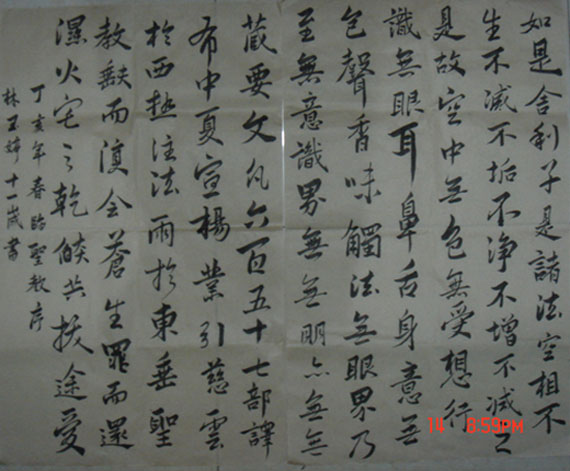 如是舍利子是諸法空相不
生不減不垢不净不增不減
是故空中無色無受想行
識無眼耳鼻舌身意無
色聲香味觸法無眼界乃
至無意識界無無明亦無無
藏要文凡六百五十七部譯
布中夏宣楊業引慈雲
於西極注法雨於東垂聖
教缺而復全蒼生罪而還
濕火宅之乾燄共拔途愛
丁亥年春臨聖教序
林玉婷十一歲書
14 8:59PM